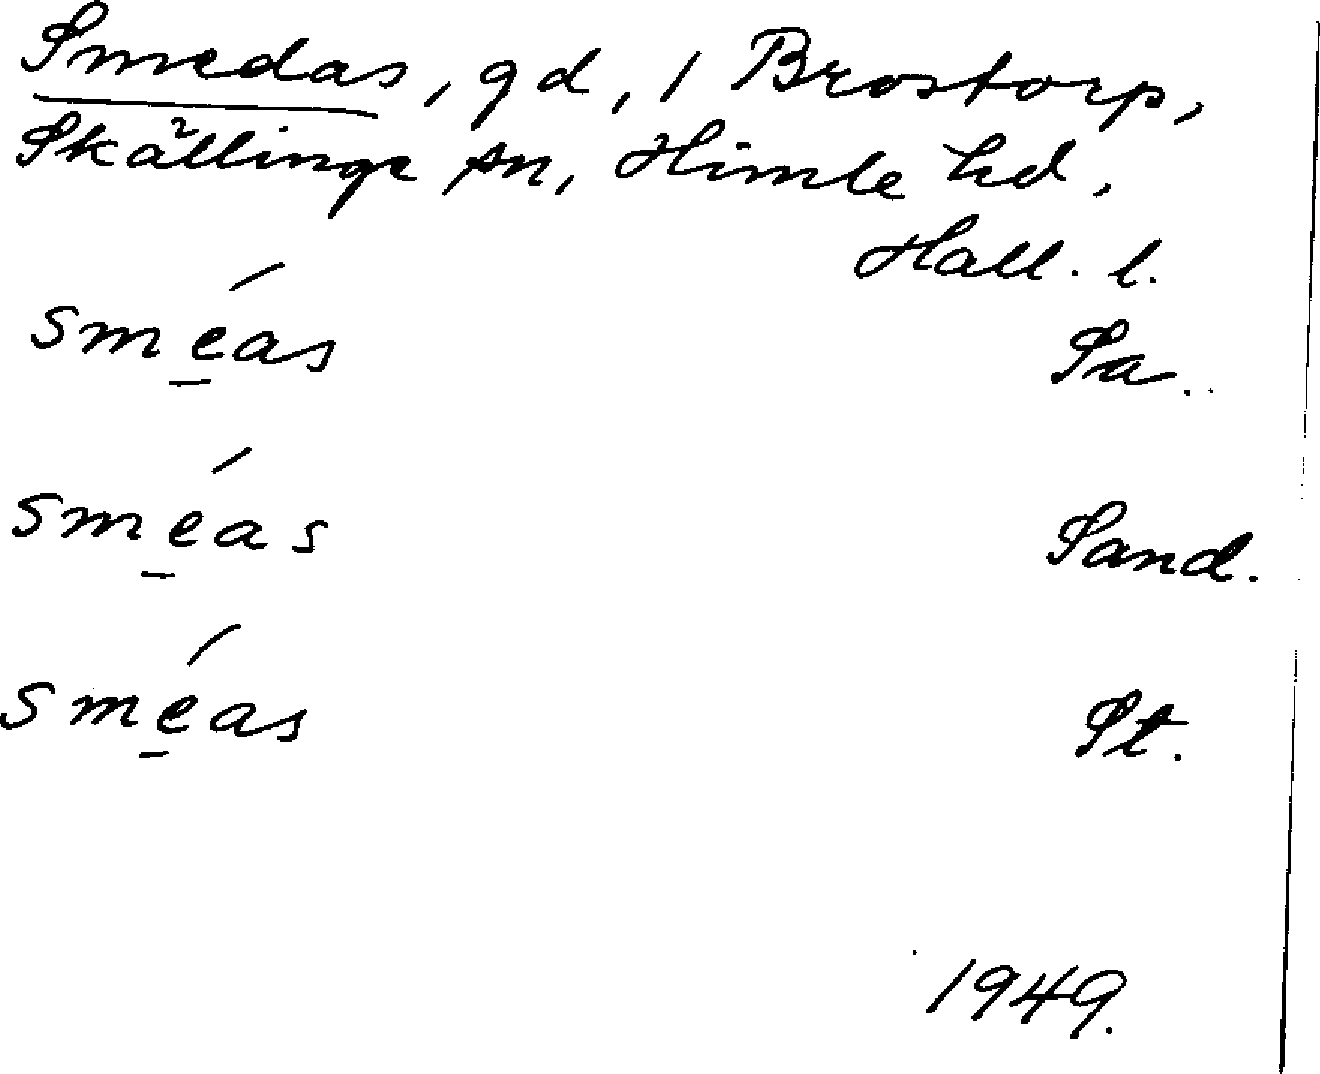 Smedas, gd, 1 Brostorp,
Skällinge sn, Himle hd,
Hall. l.
sme̲´as Sa.
sme̲´as Sand.
sme̲´as St.
1949.